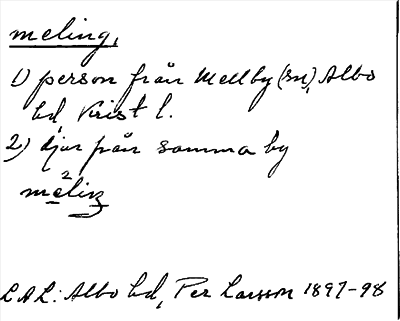 meling,
1) person från Mellby (sn), Albo
hd, Krist l.
2) djur från samma by
mèlinz
LAL: Albo hd, Per Larsson 1897-98